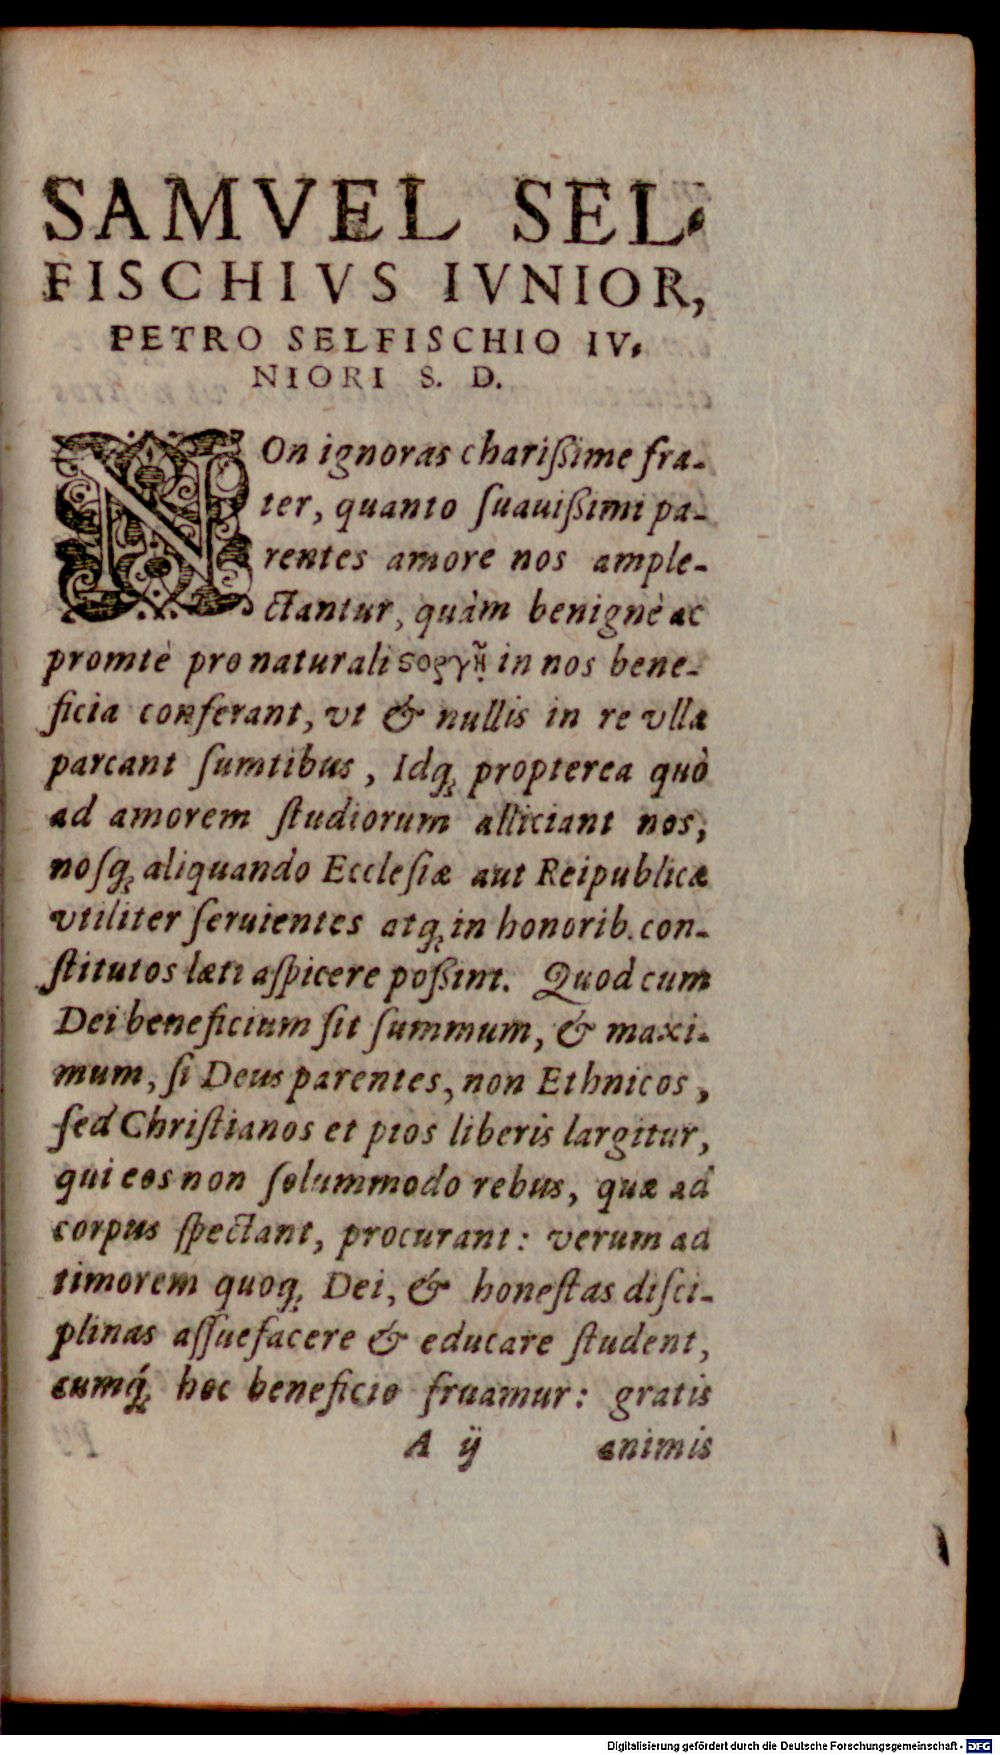 SAMVEL SEL-
FISCHIVS IVNIOR,
PETRO SELFISCHIO IV-
NIORI S. D.
NOn ignoras charißime fra-
ter, quanto ſuauißimi pa-
rentes amore nos ample-
ctantur, quàm benignè ac
promtè pro naturali ϛοργῇ in nos bene-
ficia conferant, vt & nullis in re vlla
parcant ſumtibus, Idq́ꝫ propterea quò
ad amorem ſtudiorum alliciant nos,
noſqꝫ aliquando Eccleſiæ aut Reipublicæ
vtiliter ſeruientes atqꝫ in honorib. con-
ſtitutos læti aſpicere poßint. Quod cum
Dei beneficium ſit ſummum, & maxi-
mum, ſi Deus parentes, non Ethnicos,
ſed Chriſtianos et pios liberis largitur,
qui eos non ſolummodo rebus, quæ ad
corpus ſpectant, procurant: verum ad
timorem quoqꝫ Dei, & honeſtas diſci-
plinas aſſuefacere & educare ſtudent,
cumq́ꝫ hoc beneficio fruamur: gratis
A ij animis
Digitalisierung gefördert durch die Deutsche Forschungsgemeinschaft - DFG